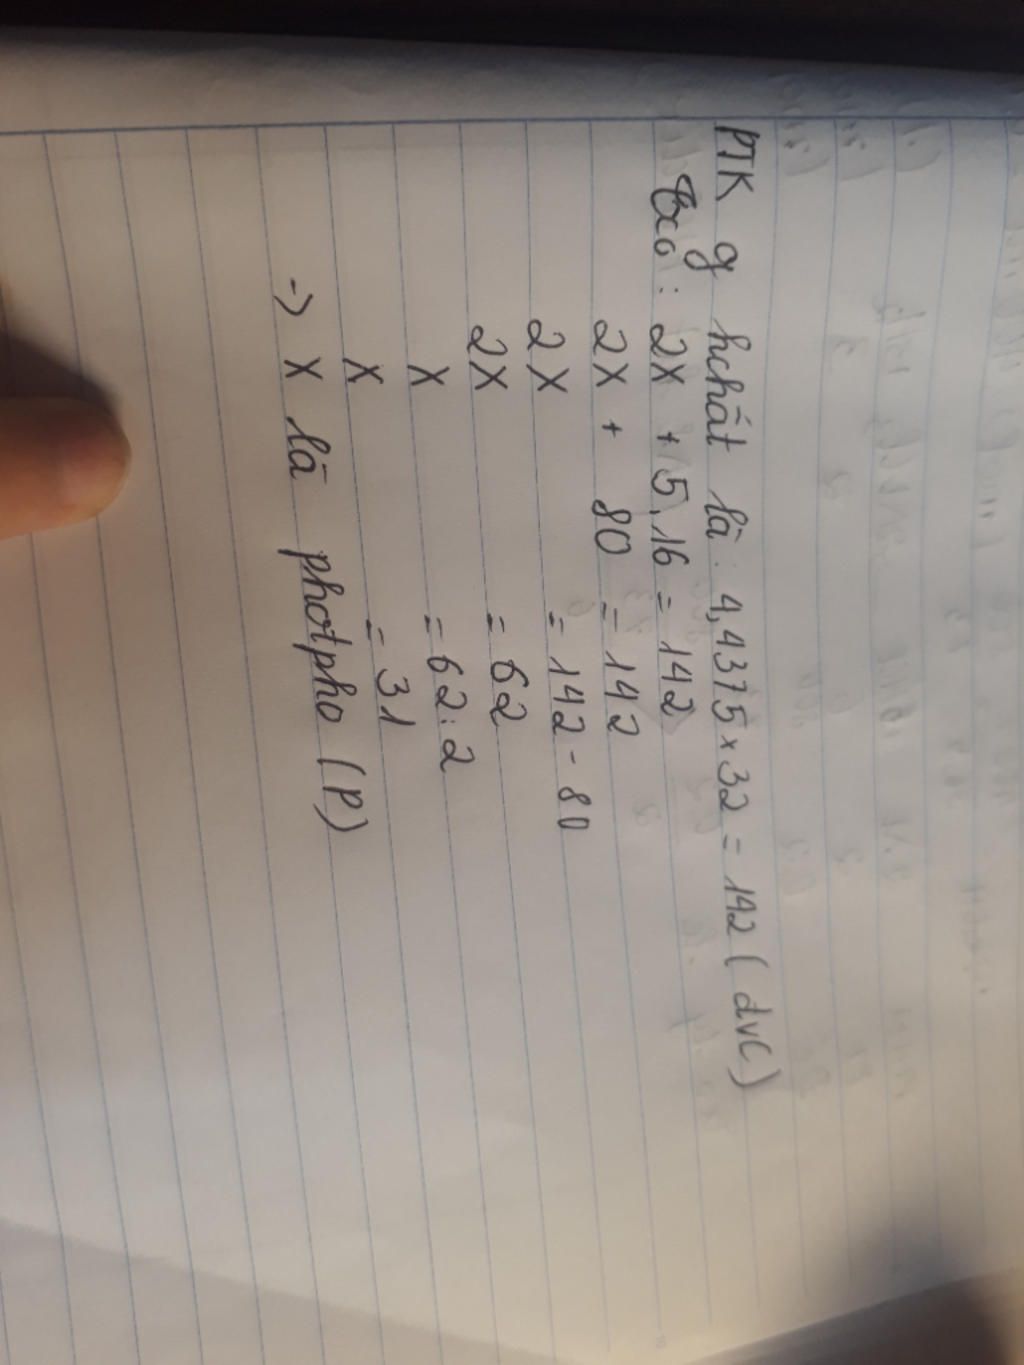 PTK g hchất là: 4,4375 x 32 = 142 (dvC)
2X + 5.16 = 142
2X + 80 = 142
2X = 142 - 80
2X = 62
X = 62:2
X = 31
-> X là photpho (P)